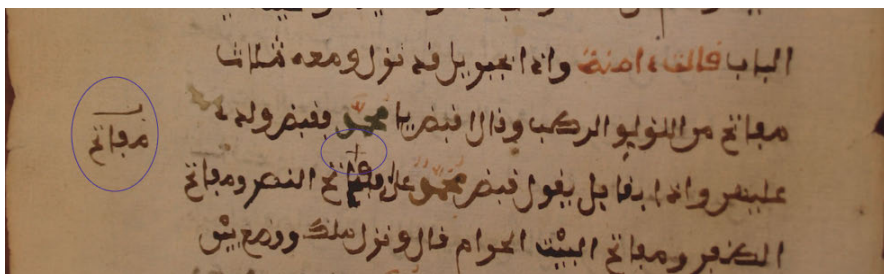 الباب قالت ءامنة واذا بجبريل قد نزل ومعه ثلاث
مفاتح من اللؤلؤ الركب وقال اقبض يا محمد فقبض ولدى
عليهم واذا بقايل يقول قبض محمد على مفاتح النصر ومفاتح
الكفر ومفاتح البيت الحرام قال ونزل ملك ووضع بين
مفاتح